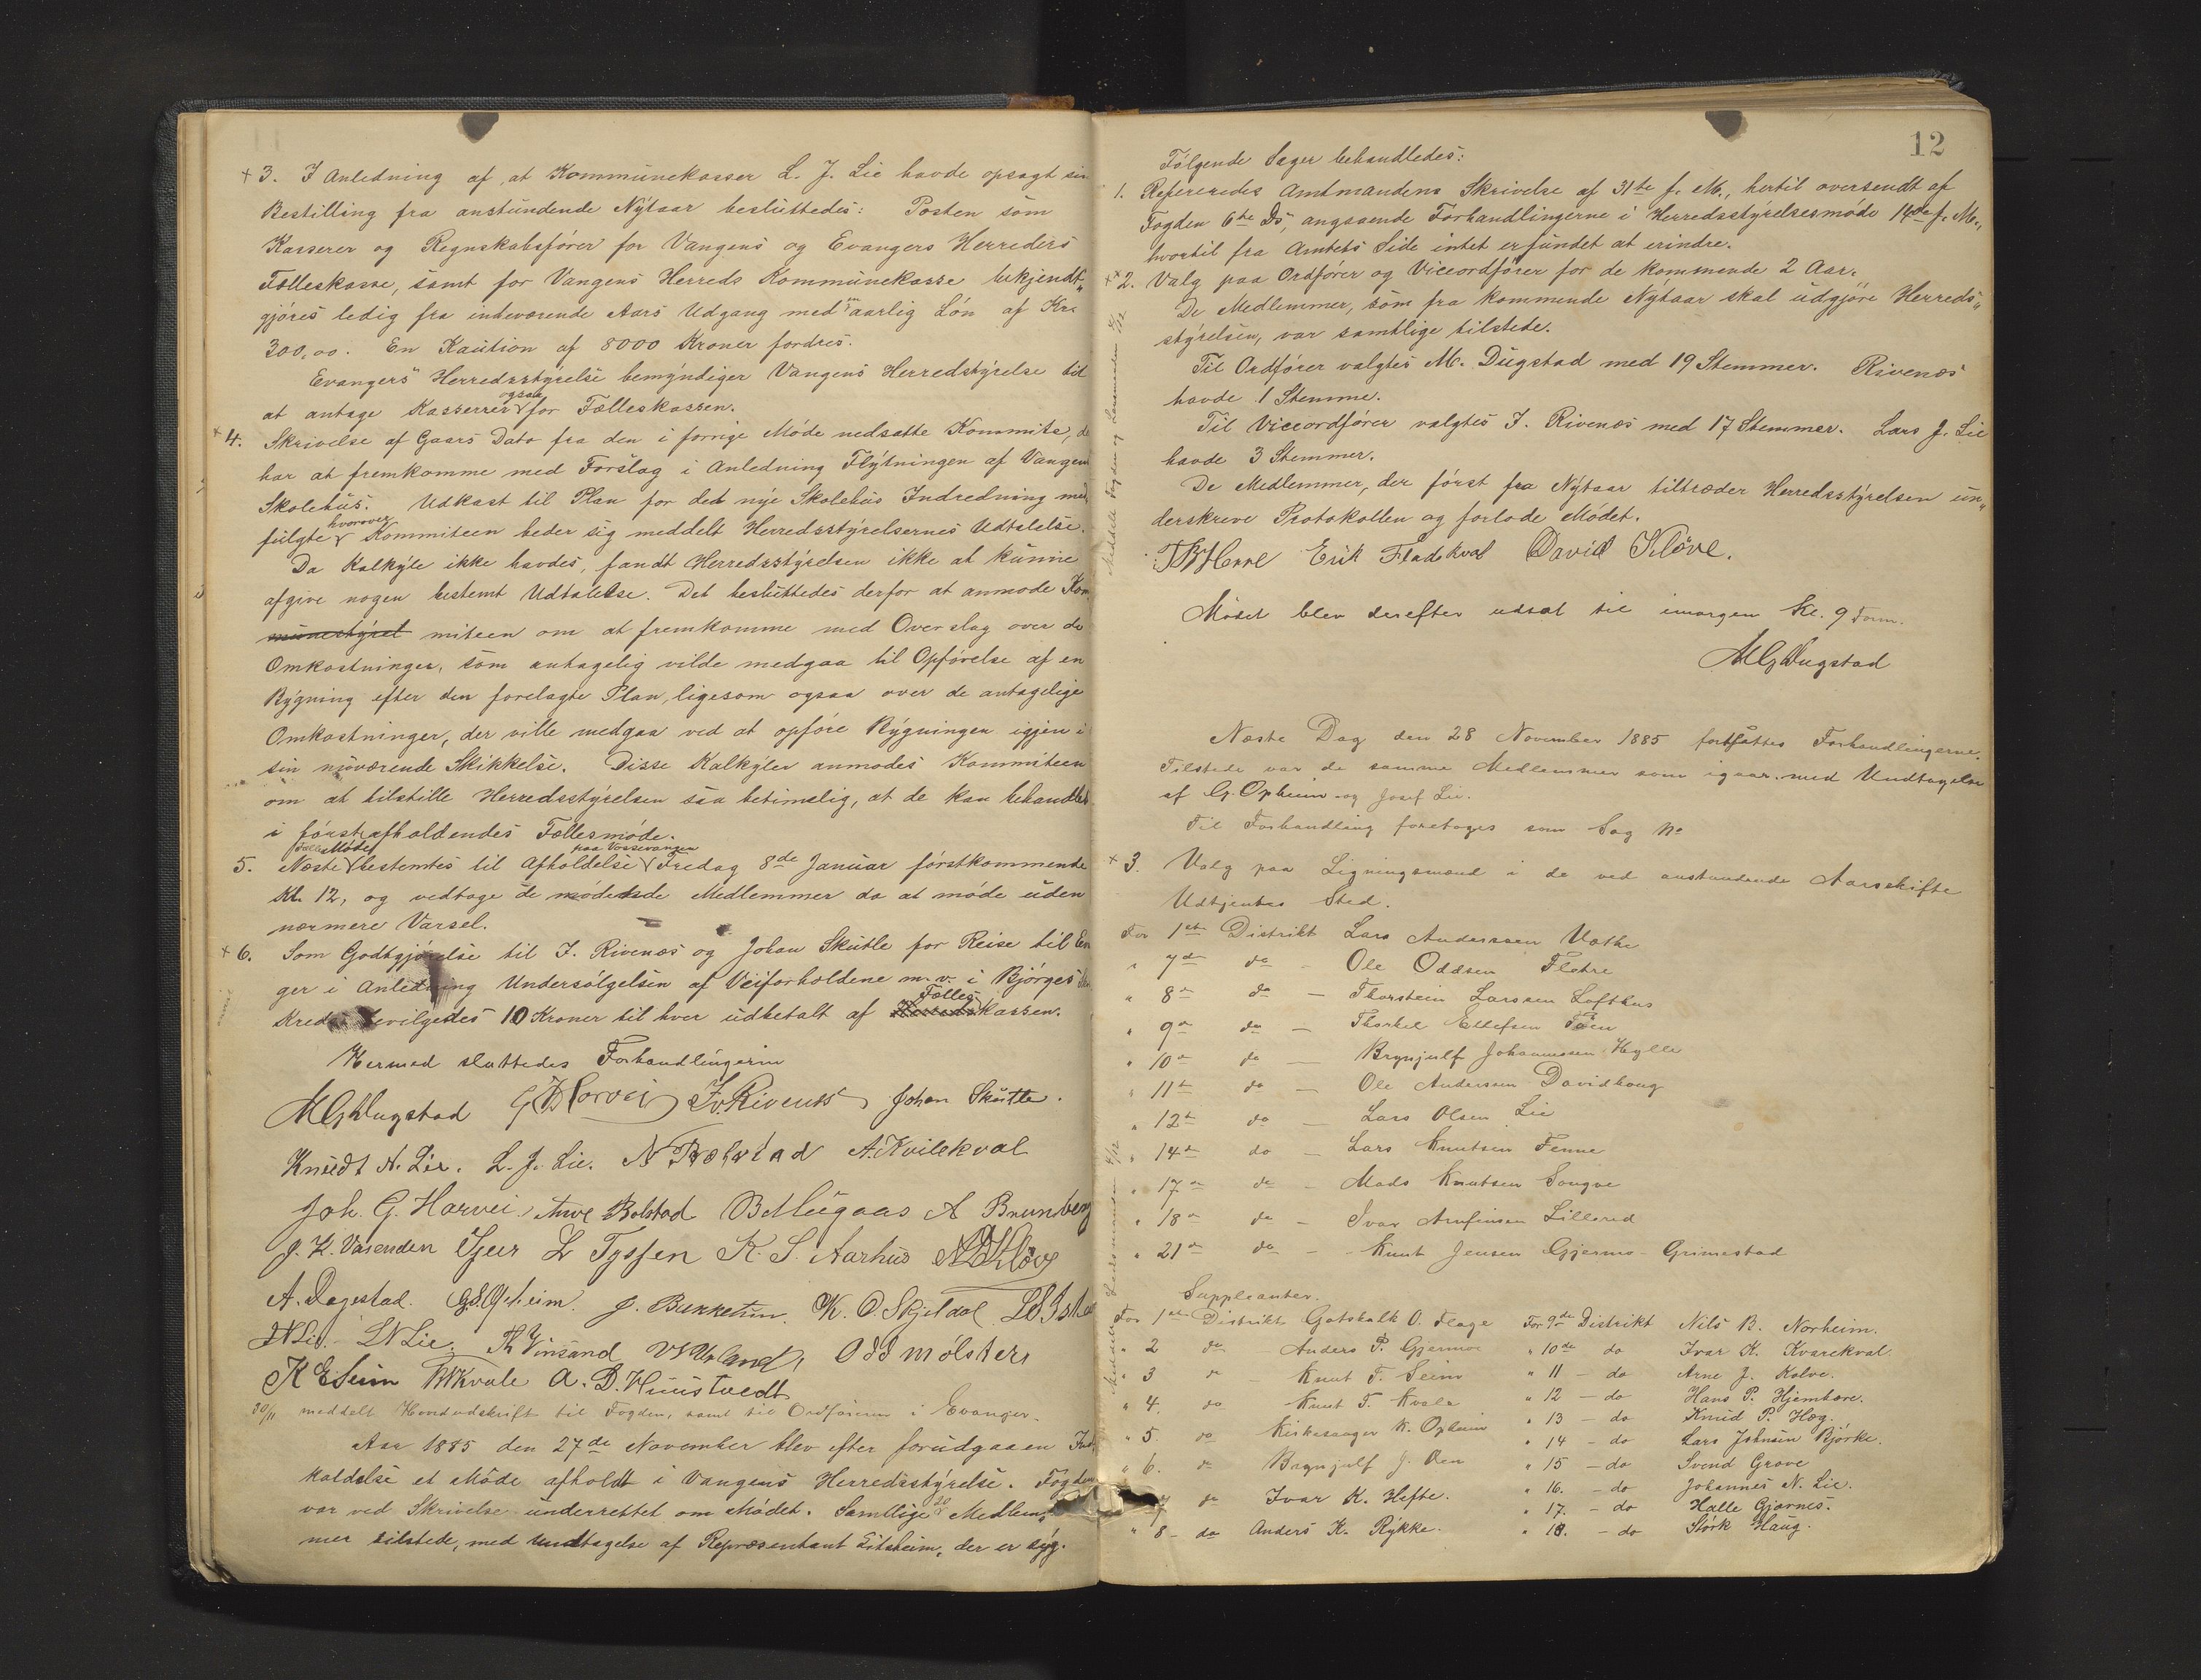 + 3. I Anledning af, at Kommunekasser L. J. Lie havde opsagt sin
Bestilling fra anstundende Nytaar besluttedes: Posten som
Kasserer og Regnskabsfører for Vangens og Evangers Herreders
Fælleskasse, samt for Vangens Herreds Kommunekasse bekjendt„
gjöres ledig fra indeværende Aars Udgang med en aarlig Lön af Kr.
300,00. En Kaution af 8000 Kroner fordres.
Evangers Herredsstyrelse bemyndiger Vangens Herredstyrelse til
at antage Kasserrer ogsaa for Fælleskassen.
+ 4. Skrivelse af Gaars Dato fra den i forrige Möde nedsatte Kommite, de
har at fremkomme med Forslag i Anledning Flytningen af Vangens
Skolehus. Udkast til Plan for det nye Skolehus Indredning med„
fulgte hvorover Kommiteen beder sig meddelt Herredsstyrelsernes Udtalelse.
Da Kalkyle ikke havdes, fandt Herredsstyrelsen ikke at kunne
afgive nogen bestemt Udtalelse. Det besluttedes derfor at anmode Kom
munestyrel miteen om at fremkomme med Overslag over de
Omkostninger, som antagelig vilde medgaa til Opförelse af en
Bygning efter den forelagte Plan, ligesom ogsaa over de antagelige
Omkostninger, der ville medgaa ved at opföre Bygningen igjen i
sin nuværende Skikkelse. Disse Kalkyler anmodes Kommiteen
om at tilstille Herredsstyrelsen saa betimelig, at de kan behandles
i först afholdendes Fællesmöde.
5. Næste Fælles Möde bestemtes til Afholdelse paa Vossevangen Fredag 8de Januar förstkommende
Kl. 12, og vedtoge de mödende Medlemmer da at möde uden
nærmere Varsel.
+ 6. Som Godtgjörelse til I. Rivenæs og Johan Skutle for Reise til Evan
ger i Anledning Undersölgelsen af Veiforholdene m. v. i Bjørges
Kreds bevilgedes 10 Kroner til hver udbetalt af Herreds Fælles kassen.
Hermed sluttedes Forhandlingerne
MGDugstad GBHorvei IvRivenæs Johan Skutle.
Knudt N. Lie. L. J. Lie. N Rolstad A. Kvilekval
Joh. G. Horvei, Arve Bolstad B Mugaas A Brunborg
J. K. Vasenden Sjur L Tyssen K. S. Aarhus NDKlöve
A. Dagestad. GSOpheim. J. Bukketun. K. O. Skjeldal
LNLie. Th Vinsand Odd mölster
K E Seim KKvale A. B. Hunstvedt
30/11 meddelt Hovedudskrift til Fogden, samt til Ordföreren i Evanger.
Aar 1885 den 27de November blev efter forudgaaen Ind
kaldelse et Möde afholdt i Vangens Herredsstyrelse. Fogden
var ved Skrivelse underrettet om Mödet. Samtlige 20 Medlem„
mer tilstede, med undtagelse af Repræsentant Gitsheim, der er syg.
12
Fölgende Sager behandledes:
1. Refereredes Amtmandens Skrivelse af 31te f. M., hertil oversendt af
Fogden 6te Ds, angaaende Forhandlingerne i Herredsstyrelsesmöde 14de f. M.,
hvortil fra Amtets Side intet erfundet at erindre.
+ 2. Valg paa Ordförer og Viceordförer for de kommende 2 Aar.
De Medlemmer, som fra kommende Nytaar skal udgjöre Herreds„
styrelsen, var samtlige tilstede.
Til Ordförer valgtes M. Dugstad med 19 Stemmer. Rivenæs
havde 1 Stemme.
Til Viceordförer valgtes I. Rivenæs med 17 Stemmer. Lars J. Lie
havde 3 Stemmer.
De Medlemmer, der först fra Nytaar tiltræder Herredsstyrelsen un„
derskreve Protokollen og forlode Mödet.
Erik Fladekval David Klöve.
Mödet blev derefter udsat til imorgen Kl. 9 Form.
MGDugstad
Næste Dag den 28 November 1885 fortsattes Forhandlingerne.
Tilstede var de samme Medlemmer som igaar med Undtagelse
af G. Opheim og Josef Lie.
Til Forhandling foretoges som Sag No
+ 3. Valg paa Ligningsmænd i de ved anstundende Aarsskifte
Udtjentes Sted.
For 1ste Distrikt Lars Anderssen Væthe
" 7de do - Ole Oddsen Fletre
" 8de do - Thorstein Larssen Lofthus
" 9de do - Thorkel Ellefsen Töen
" 10de do - Brynjulf Johannessen Hylle
" 11te do - Ole Anderssen Davidhaug
" 12te do - Lars Olsen Lie
" 14de do - Lars Knutsen Fenne
" 17de do - Mads Knutsen Songve
" 18de do - Ivar Arnfinsen Lillered
" 21de do - Knut Jensen Gjerme - Grimestad
Suppleanter.
For 1ste Distrikt Gotskalk O. Flage For 9de Distrikt Nils B. Norheim.
" 2 do Anders P. Gjerme " 10de do Ivar K. Kvarekval.
" 3 do - Knut T. Seim " 11 - do Arne J. Kolve.
" 4. do Knut T. Kvale " 12 - do Hans P. Hjembære.
" 5. do Kirkesanger K. Opheim " 13 - do Knud P. Hæg.
" 6. do Brynjulf J. Öen " 14 - do Lars Johnsen Björke.
" 7 do Ivar K. Hefte. " 15 - do Svend Grove
" 8 - do Anders K. Rykke. " 16. - do Johannes N. Lie.
" 17. - do Halle Gjernes.
" 18. - do Störk Haug.